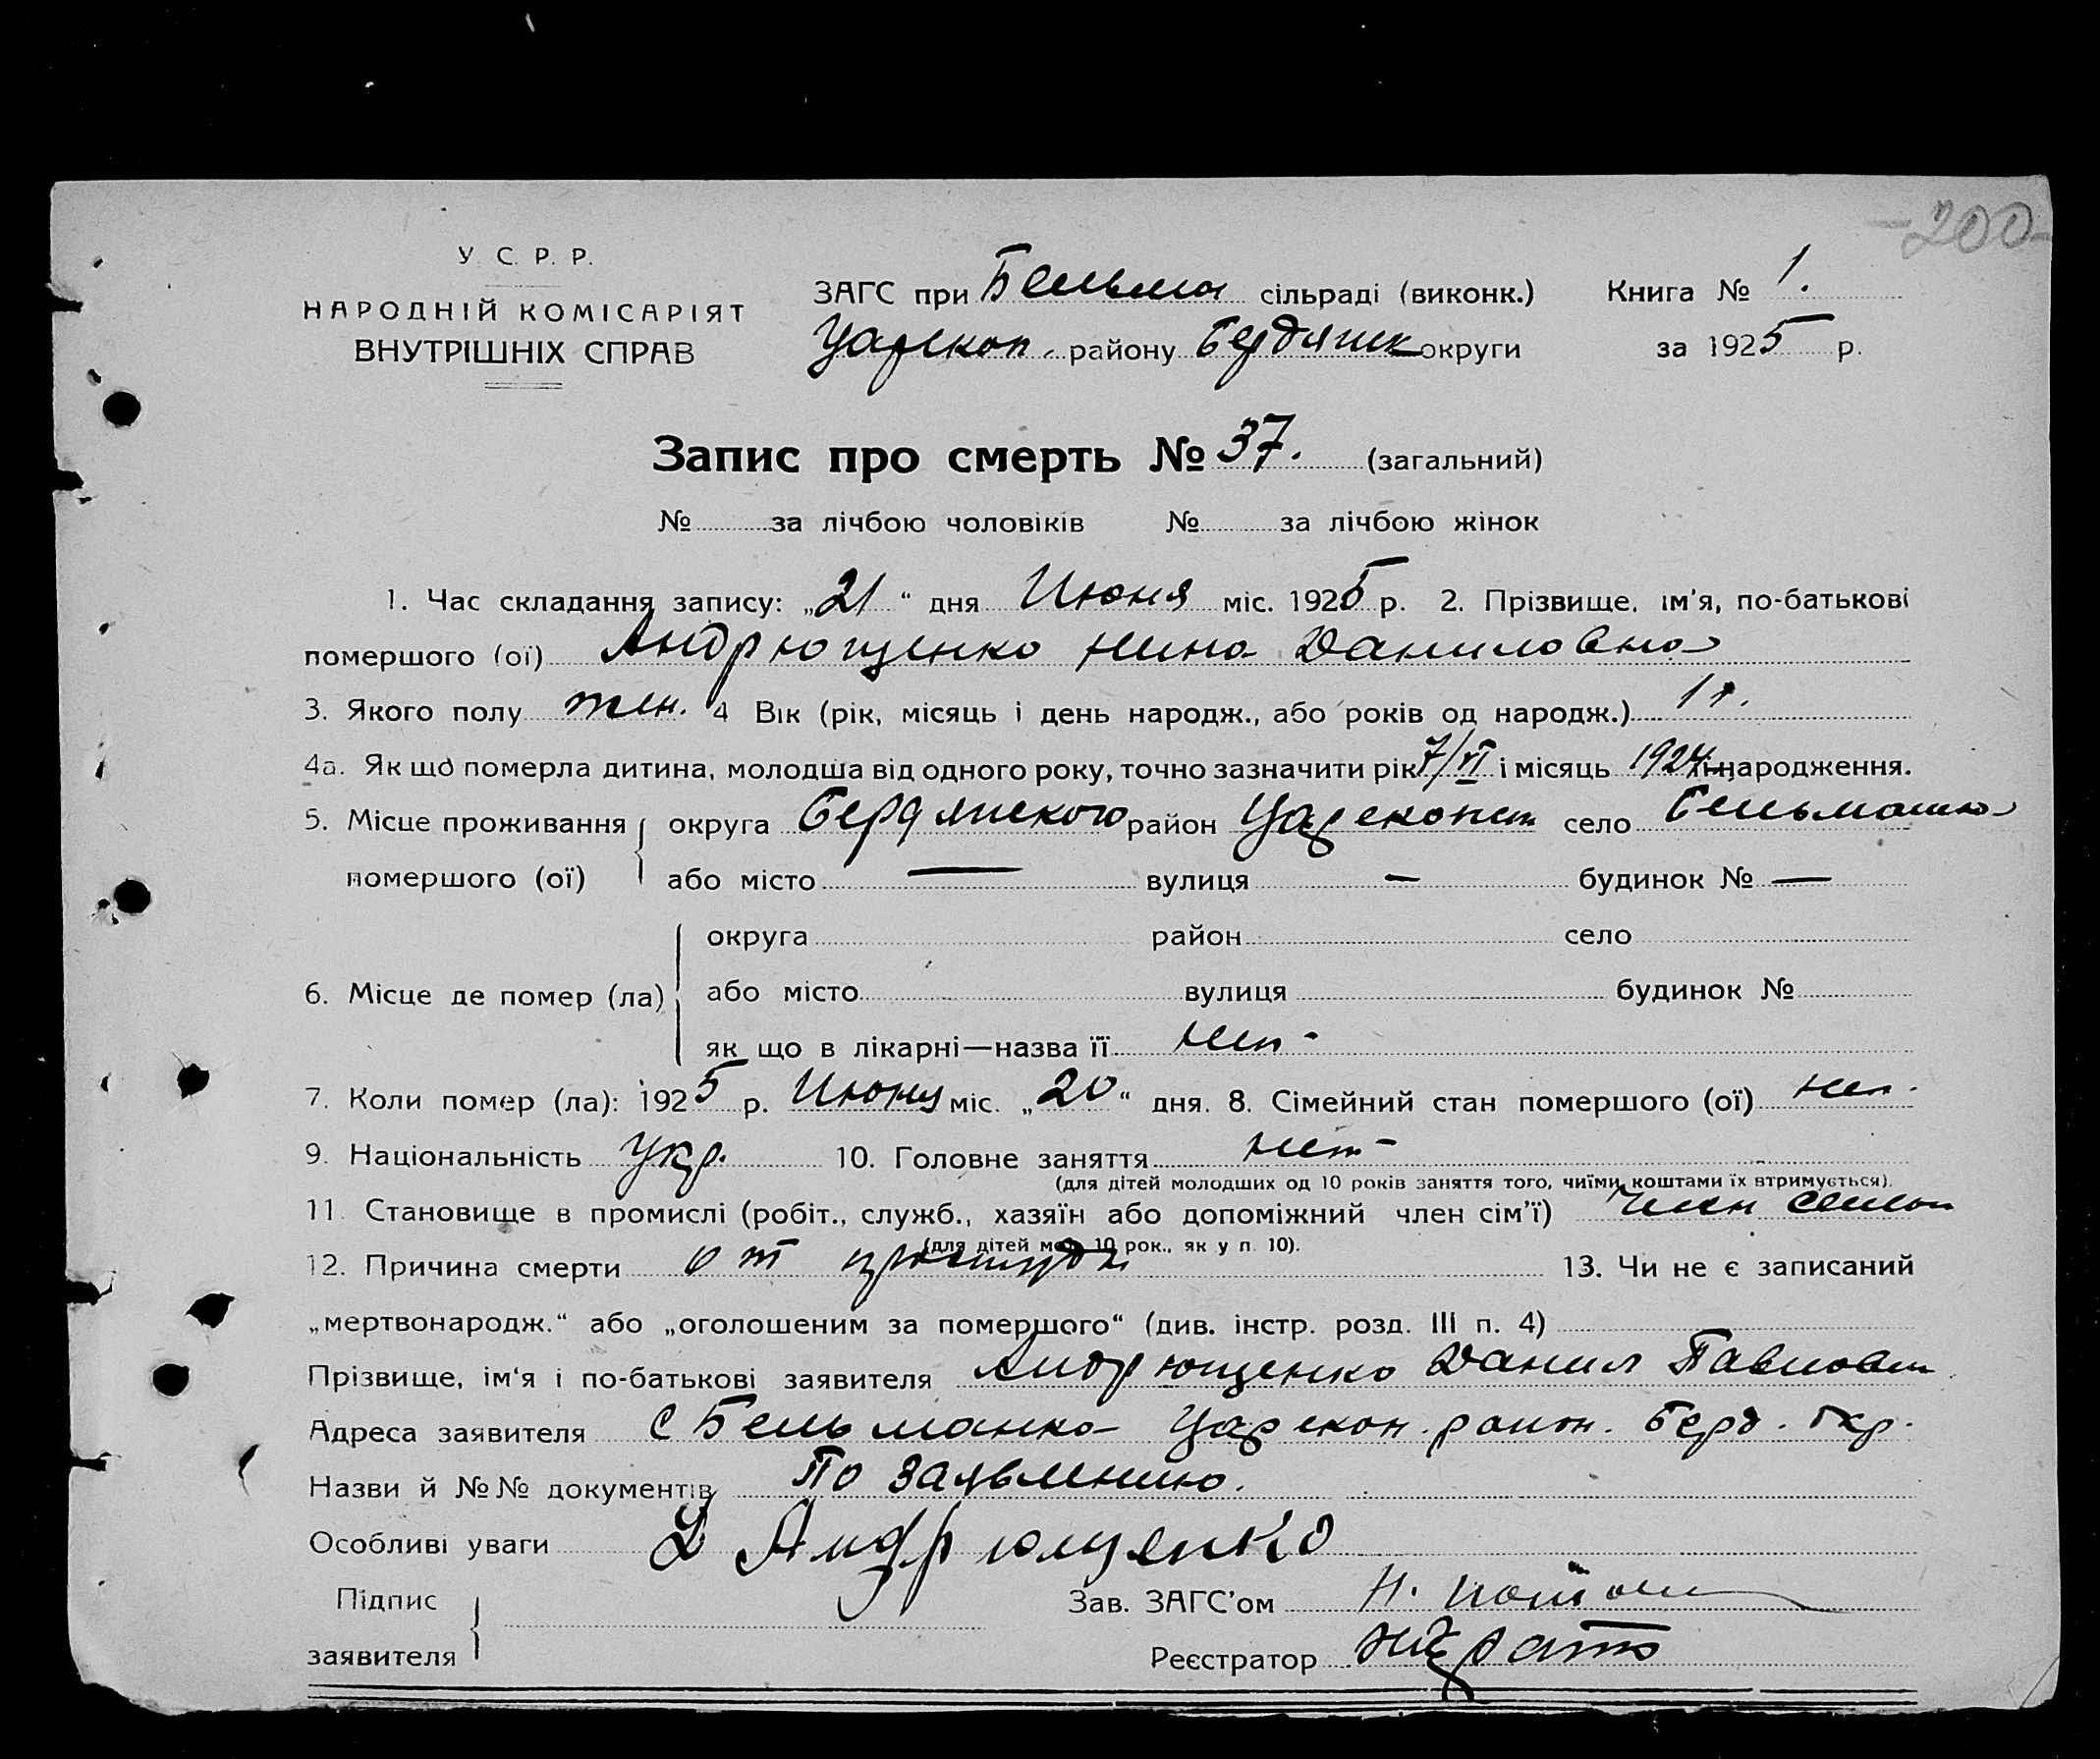 200
У. С. Р. Р.
НАРОДНІЙ КОМІСАРІЯТ
ВНУТРІШНІХ СПРАВ
ЗАГС при Бельман сільраді (виконк.) Книга № 1.
Царекон. району Бердянск округи за 1925 р.
Запис про смерть № 37. (загальний)
№ за лічбою чоловіків № за лічбою жінок
1. Час складання запису: „21“ дня Июня міс. 1925 р. 2. Прізвище, ім'я, по-батькові
помершого (ої) Андрющенко Нина Даниловна
3. Якого полу жен. 4 Вік (рік, місяць і день народж., або років од народж.) 1 г.
4а. Як що померла дитина, молодша від одного року, точно зазначити рік 7/VI і місяць 1924 народження.
5. Місце проживання округа Бердянского район Царекон село Бельманка
помершого (ої) або місто — вулиця — будинок № —
округа район село
6. Місце де помер (ла) або місто вулиця будинок №
як що в лікарні—назва її нет
7. Коли помер (ла): 1925 р. Июня міс. „20“ дня. 8. Сімейний стан помершого (ої) нет
9. Національність укр. 10. Головне заняття нет
(для дітей молодших од 10 років заняття того, чиїми коштами їх втримується).
11. Становище в промислі (робіт., служб., хазяїн або допоміжний член сім'ї) член семьи
(для дітей мол. 10 рок., як у п. 10).
12. Причина смерти от простуды 13. Чи не є записаний
„мертвонародж.“ або „оголошеним за помершого“ (див. інстр. розд. III п. 4)
Прізвище, ім'я і по-батькові заявителя Андрющенко Данил Павлович
Адреса заявителя с Бельманка Царекон. район. Берд. Окр.
Назви й №№ документів По заявлению.
Особливі уваги Д Андрющенко
Підпис Зав. ЗАГС'ом Н.
заявителя Реєстратор